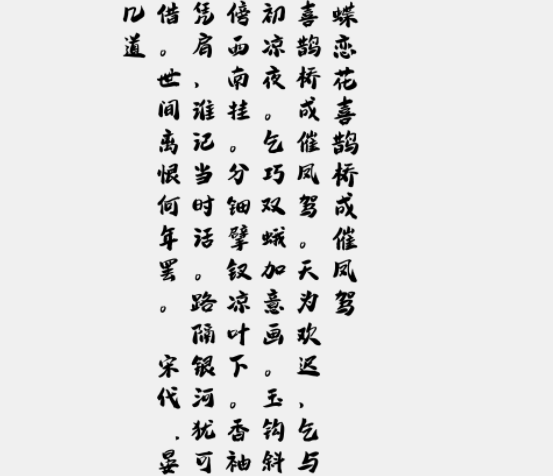 蝶恋花喜鹊桥成催凤驾
喜鹊桥成催凤驾。天为欢迟、乞与
初凉夜。乞巧双蛾加意画。玉钩斜
傍西南挂。分钿擘钗凉叶下。香袖
凭肩、谁记当时话。路隔银河犹可
借。世间离恨何年罢。 宋代.晏
几道